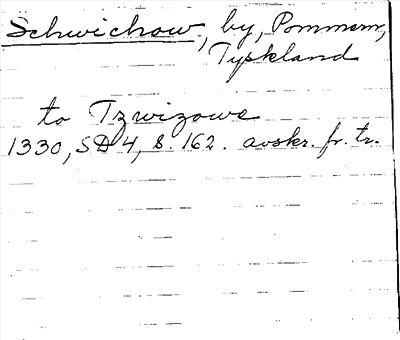 Schwichow, by, Pommern,
Tyskland
to Tzwizowe
1330, SD 4, s. 162. avskr. fr. tr.